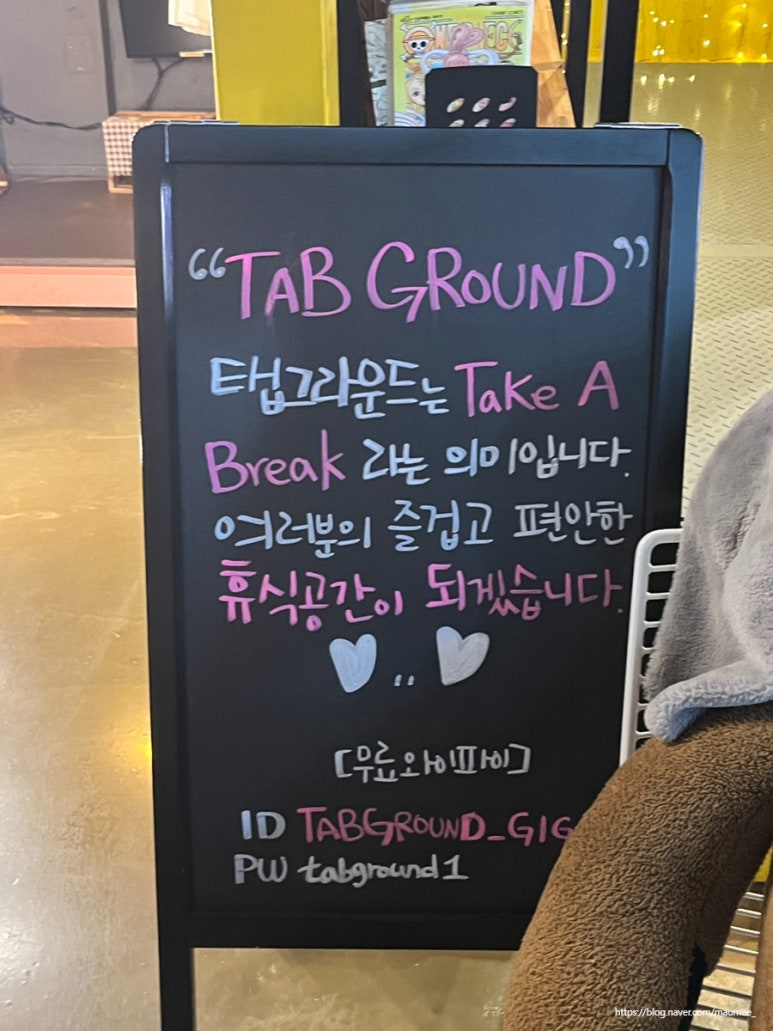 “TAB GROUND”
탭그라운드는 Take A
Break 라는 의미입니다.
여러분의 즐겁고 편안한
휴식공간이 되겠습니다.
[무료와이파이]
ID TABGROUND_GIG
PW tabground1
https://blog.naver.com/maumee_